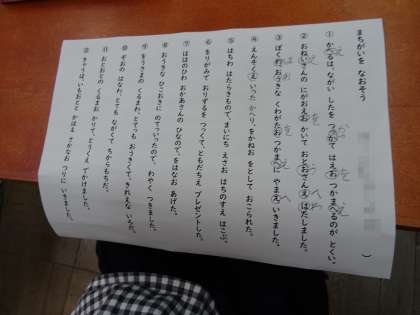 まちがいを なおそう
① かへるは、ながい したを つかて はえお つかまへるのが とくい。
② おねいさんの にがおえお かいて おとおさんえ はだしました。
③ ぼくわ おうきな くわがたお つかまへに やまえ いきました。
④ えんそくえ いった かへり、をかねお をとして おこられた。
⑤ はちわ はたらきもので、まいにち えさお はちのすえ はこぶ。
⑥ をりがみて おりずるを つつくて、ともだちえ プレゼントした。
⑦ ははのひわ おかあさんの ひなので、をはなお あげた。
⑧ おうきな ひこおきに のていったので、わやく つきました。
⑨ をうさまの くるまわ、とても おうきくて、きれえな いろだ。
⑩ ぞおの はなわ、とても ながくて ちからもちだ。
⑪ おとおとの くるまお かりて、とうくえ でかけました。
⑫ きのうは、いもおとと かはえ でかなお つりに いきました。